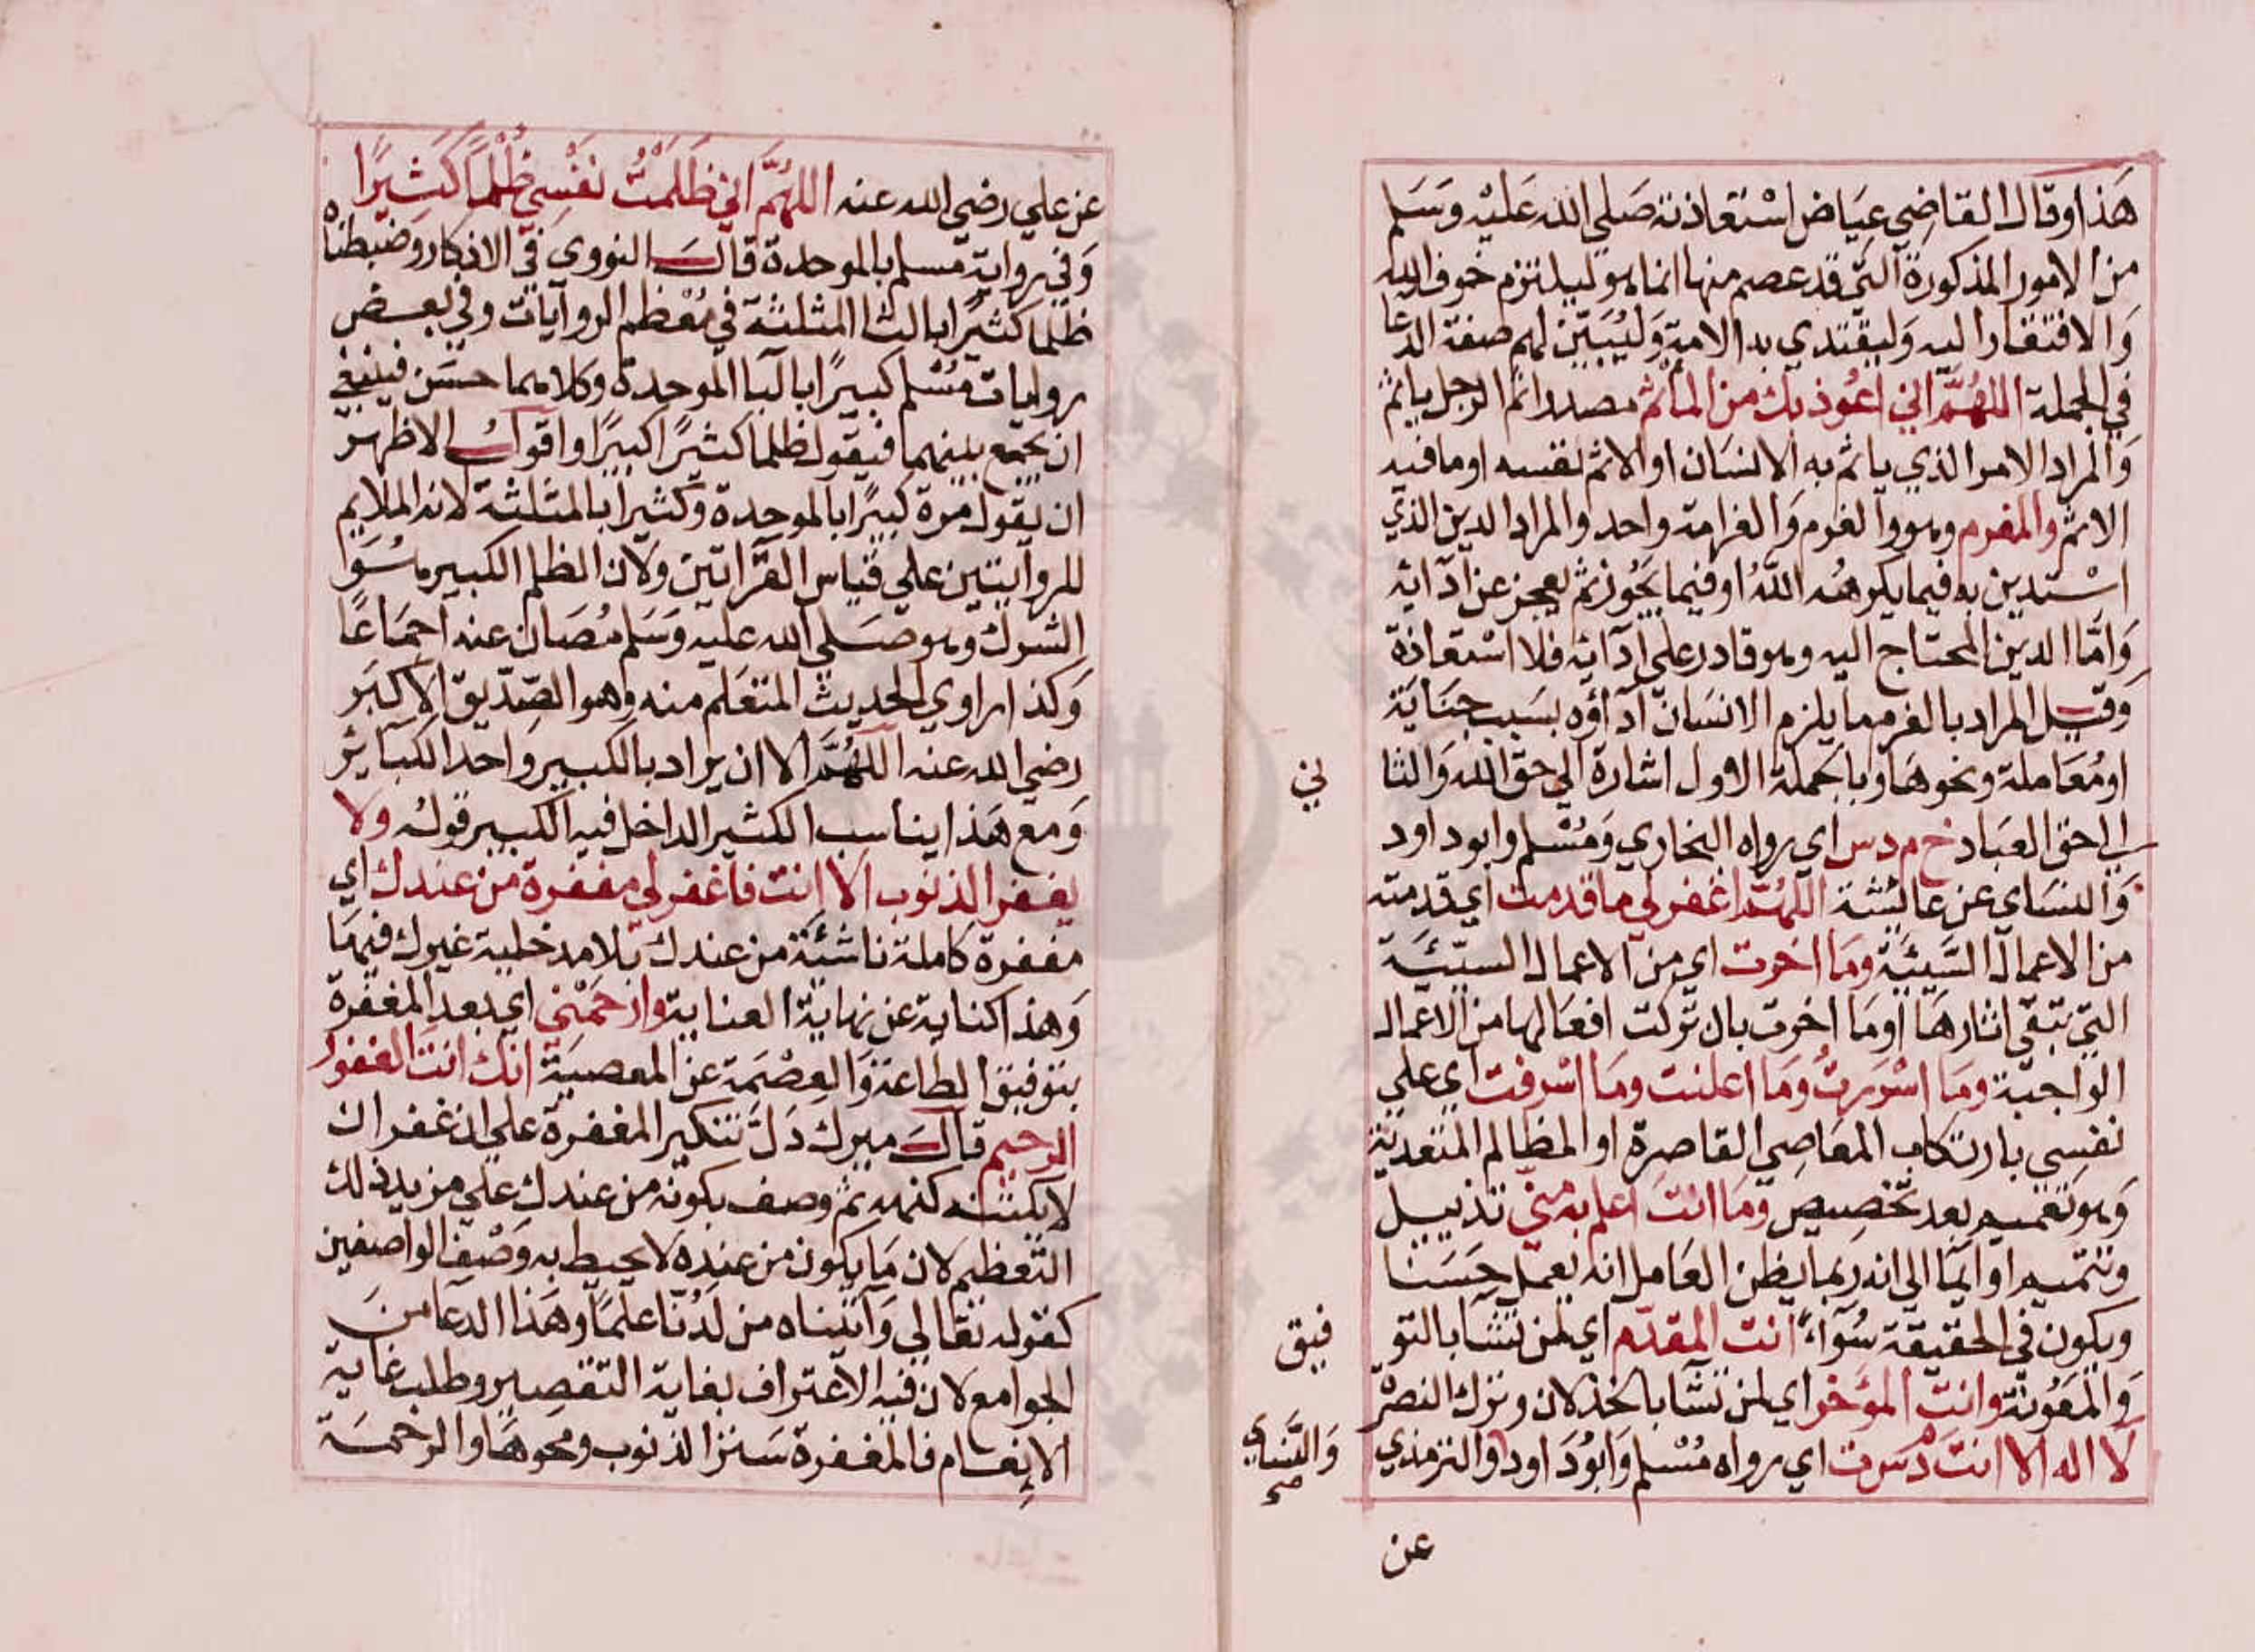 هَذا وقال القاضِي عِيَاض اسْتعَاذته صَلي الله عَليْه وَسَلم
من الامور المذكورة التي قد عصم منها انما هو ليلتزم خوف الله
وَالافتقار اليه وَليقتدي به الامة وَليُبَيّن لهم صفة الدعا
في الجملة اللهُمَّ اني اعُوذ بك من المأثم مصدر اثم الرجل ياثم
وَالمراد الامر الذي ياثم به الانسَان او الاثم نفسه او ما فيه
الاثم والمغرم وهو والغرم وَالغرامة واحد والمراد الدين الذي
اسْتدين به فيما يكرهُه اللهُ او فيما يَجُوز ثم يعجز عن ادآئه
وَامّا الدين المحتاج اليه وهو قادر على ادآئه فلا اسْتعاذة
وَقيل المراد بالغرم ما يلزم الانسَان ادآؤه بسَبب جنَايَة
او مُعَاملة ونحوهَا وبالجملة الاول اشارة الي حق الله وَالثا
ني
الي حق العبَاد خ م د س اي رواه البخاري وَمُسْلم وابو داود
وَالنسَاي عن عائشة اللهُمَّ اغفر لي ما قدمت اي قدمته
من الاعمال السَّيئَة ومَا اخرت اي من الاعمال السيّئَة
التي تبقي اثارهَا او مَا اخرت بان تركت افعَالها من الاعمال
الوَاجبة ومَا اسْرَرتُ ومَا اعلنت ومَا اسْرفت اي علي
نفسِي بارتكاب المعَاصِي القاصرة او المظالم المتعدية
وَهو تعْميم بعد تخصِيص ومَا انتَ اعلم به منّي تذييل
وتتميم او ايمَا الي انه ربما يظن العَامل انه يعمَل حِسَنا
ويكون في الحقيقة سُوآءً انت المقدّم اي لمن تشَا بالتو
فيق
وَالمَعُونة وانت المؤَخر اي لمن تشَا بالخذلان وترك النصْر
لا اله الا انت م د س ت اي رواه مُسْلم وَابُو دَاود والترمذي
وَالنَّسَاي
صح
عن
عن علي رضي الله عنه اللهُمَّ اني ظَلَمْتُ نفْسِي ظُلْمًا كَثِيرًا
وَفي رواية مسلم بالموحدة قالَ النووي في الاذكار وَضبطناه
ظلما كثيرًا بالثا المثلثة في مُعْظم الروآيات وفي بعض
روايات مُسْلم كبيرًا بالبا الموحدة وكلاهما حسَن فينبغي
ان يجمع بينهما فيقول ظلما كثيرًا كبيرًا واقولُ الاظهر
ان يقول مرة كبيرًا بالموحدة وَكثيرا بالمثلثة لانه الملايم
للروآيتين علي قياس القرَّاتين وَلان الظلم الكبير ما سُوَا
الشرك وهو صَلي الله عليه وَسَلم مُصَان عنه اجمَاعًا
وَكذا راوي الحديث المتعَلم منه وهو الصِّدّيق الاكبَر
رضي الله عنه اللهُمَّ الا ان يراد بالكبير وَاحد الكبَائر
وَمع هَذا يناسب الكثير الداخل فيه الكبير قولهُ ولا
يغفر الذنوب الا انت فاغفر لي مغفرة من عندك اي
مغفرة كاملة ناشئة من عندك بلا مدخلية غيرك فيهَا
وَهذا كناية عن نهاية العناية وارْحَمْني اي بعد المغفرة
بتوفيق الطاعة وَالعِصْمَة عن المعصيَة انك انتَ الغفور
الرحيم قالَ ميرك دَلَّ تنكير المغفرة علي ان غفرانك
لا يكتنه كنهه ثم وصف بكونه من عندك علي مزيد ذلك
التعْظيم لان مَا يكون من عندِه لا يحيط به وَصْف الواصفين
كقوله تعَالي وَآتيناه من لَدُنّا علمًا وَهَذا الدعَا منَ
الجوامع لان فيه الاعتراف بغاية التقصِير وطلب غاية
الاِنعام فالمغفرة سَتر الذنوب ومحوهَا والرحمَة